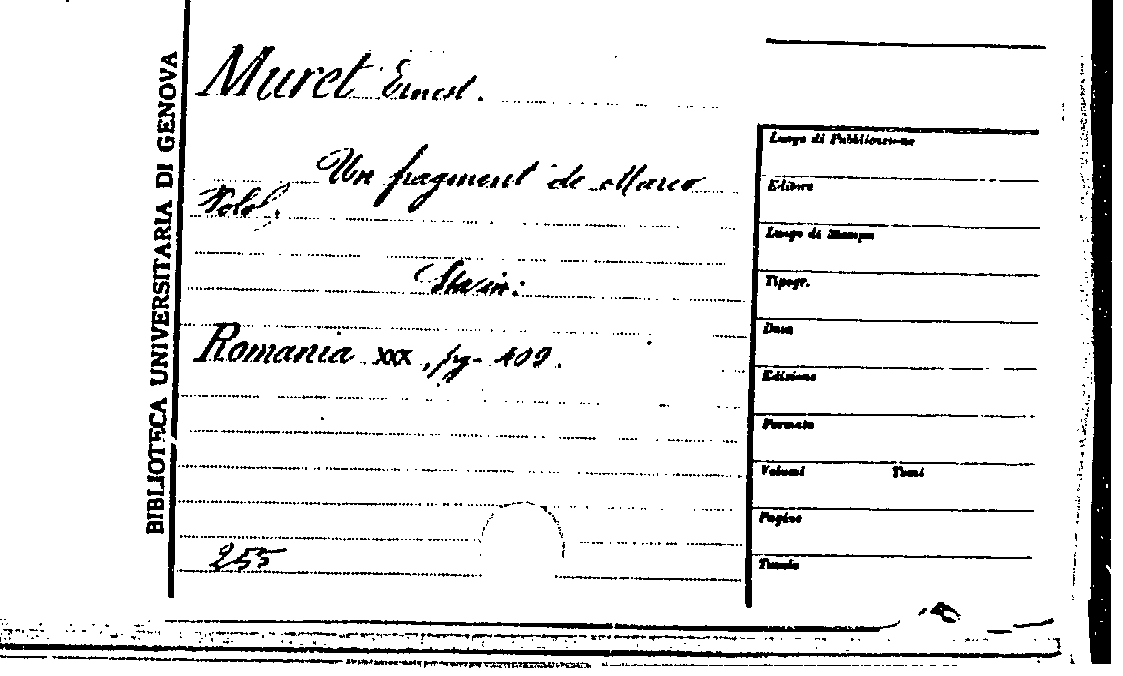 BIBLIOTECA UNIVERSITARIA DI GENOVA
Muret Ernest.
Un fragment de Marco
Polo.
Sta in:
Romania xxx, pg. 409.
255
Luogo di Pubblicazione
Editore
Luogo di Stampa
Tipogr.
Data
Edizione
Formato
Volumi Tomi
Pagine
Tavole